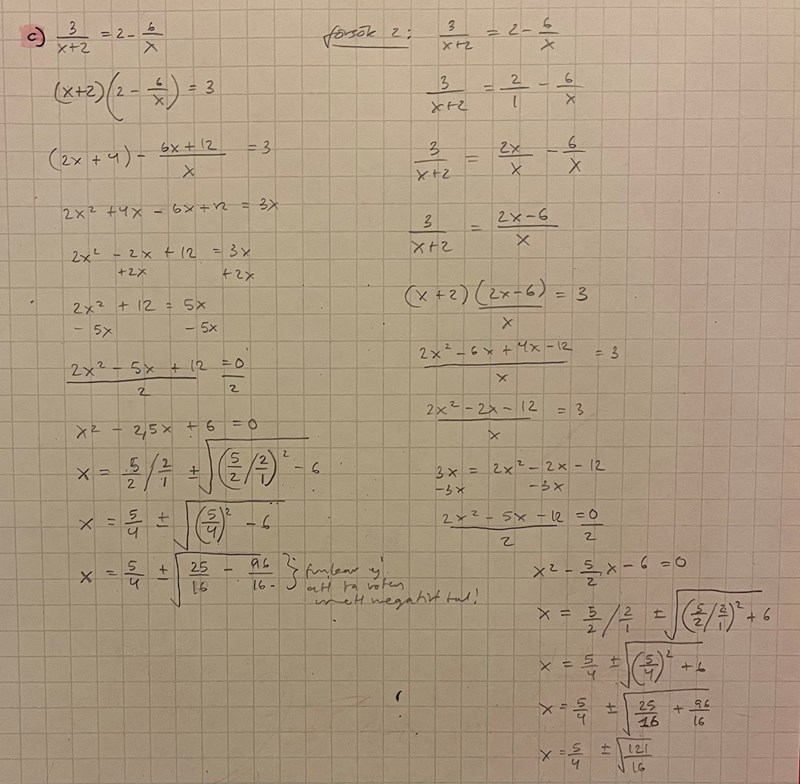 c) 3/(x+2) = 2 - 6/x
(x+2)(2 - 6/x) = 3
(2x + 4) - (6x + 12)/x = 3
2x² + 4x - 6x + 12 = 3x
2x² - 2x + 12 = 3x
+2x +2x
2x² + 12 = 5x
- 5x - 5x
(2x² - 5x + 12)/2 = 0/2
x² - 2,5x + 6 = 0
x = 5/2 / 2/1 ± √((5/2 / 2/1)² - 6)
x = 5/4 ± √((5/4)² - 6)
x = 5/4 ± √(25/16 - 96/16) } funkar ej
att ta roten
ur ett negativt tal!
försök 2: 3/(x+2) = 2 - 6/x
3/(x+2) = 2/1 - 6/x
3/(x+2) = 2x/x - 6/x
3/(x+2) = (2x-6)/x
(x+2) (2x-6)/x = 3
(2x² - 6x + 4x - 12)/x = 3
(2x² - 2x - 12)/x = 3
3x = 2x² - 2x - 12
-3x -3x
(2x² - 5x - 12)/2 = 0/2
x² - 5/2 x - 6 = 0
x = 5/2 / 2/1 ± √((5/2 / 2/1)² + 6)
x = 5/4 ± √((5/4)² + 6)
x = 5/4 ± √(25/16 + 96/16)
x = 5/4 ± √(121/16)